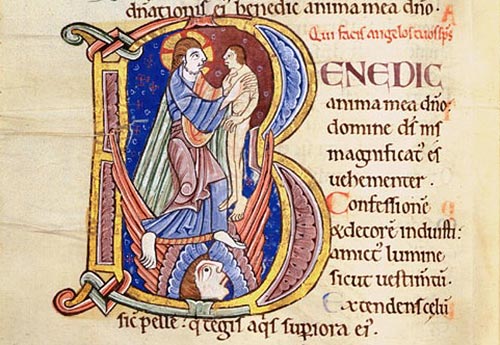 dñationis ei' benedic anima mea dño.
Qui facis angelos tuos sp̄s
BENEDIC
anima mea dño
domine d̄s m̄s
magnificat' es
uehementer .
Confessionē
& decorē induisti:
amict' lumine
sicut uestim̄tū .
Extendens celū
sic̄ pellē : q̄ tegis aq̄s supiora ei'.